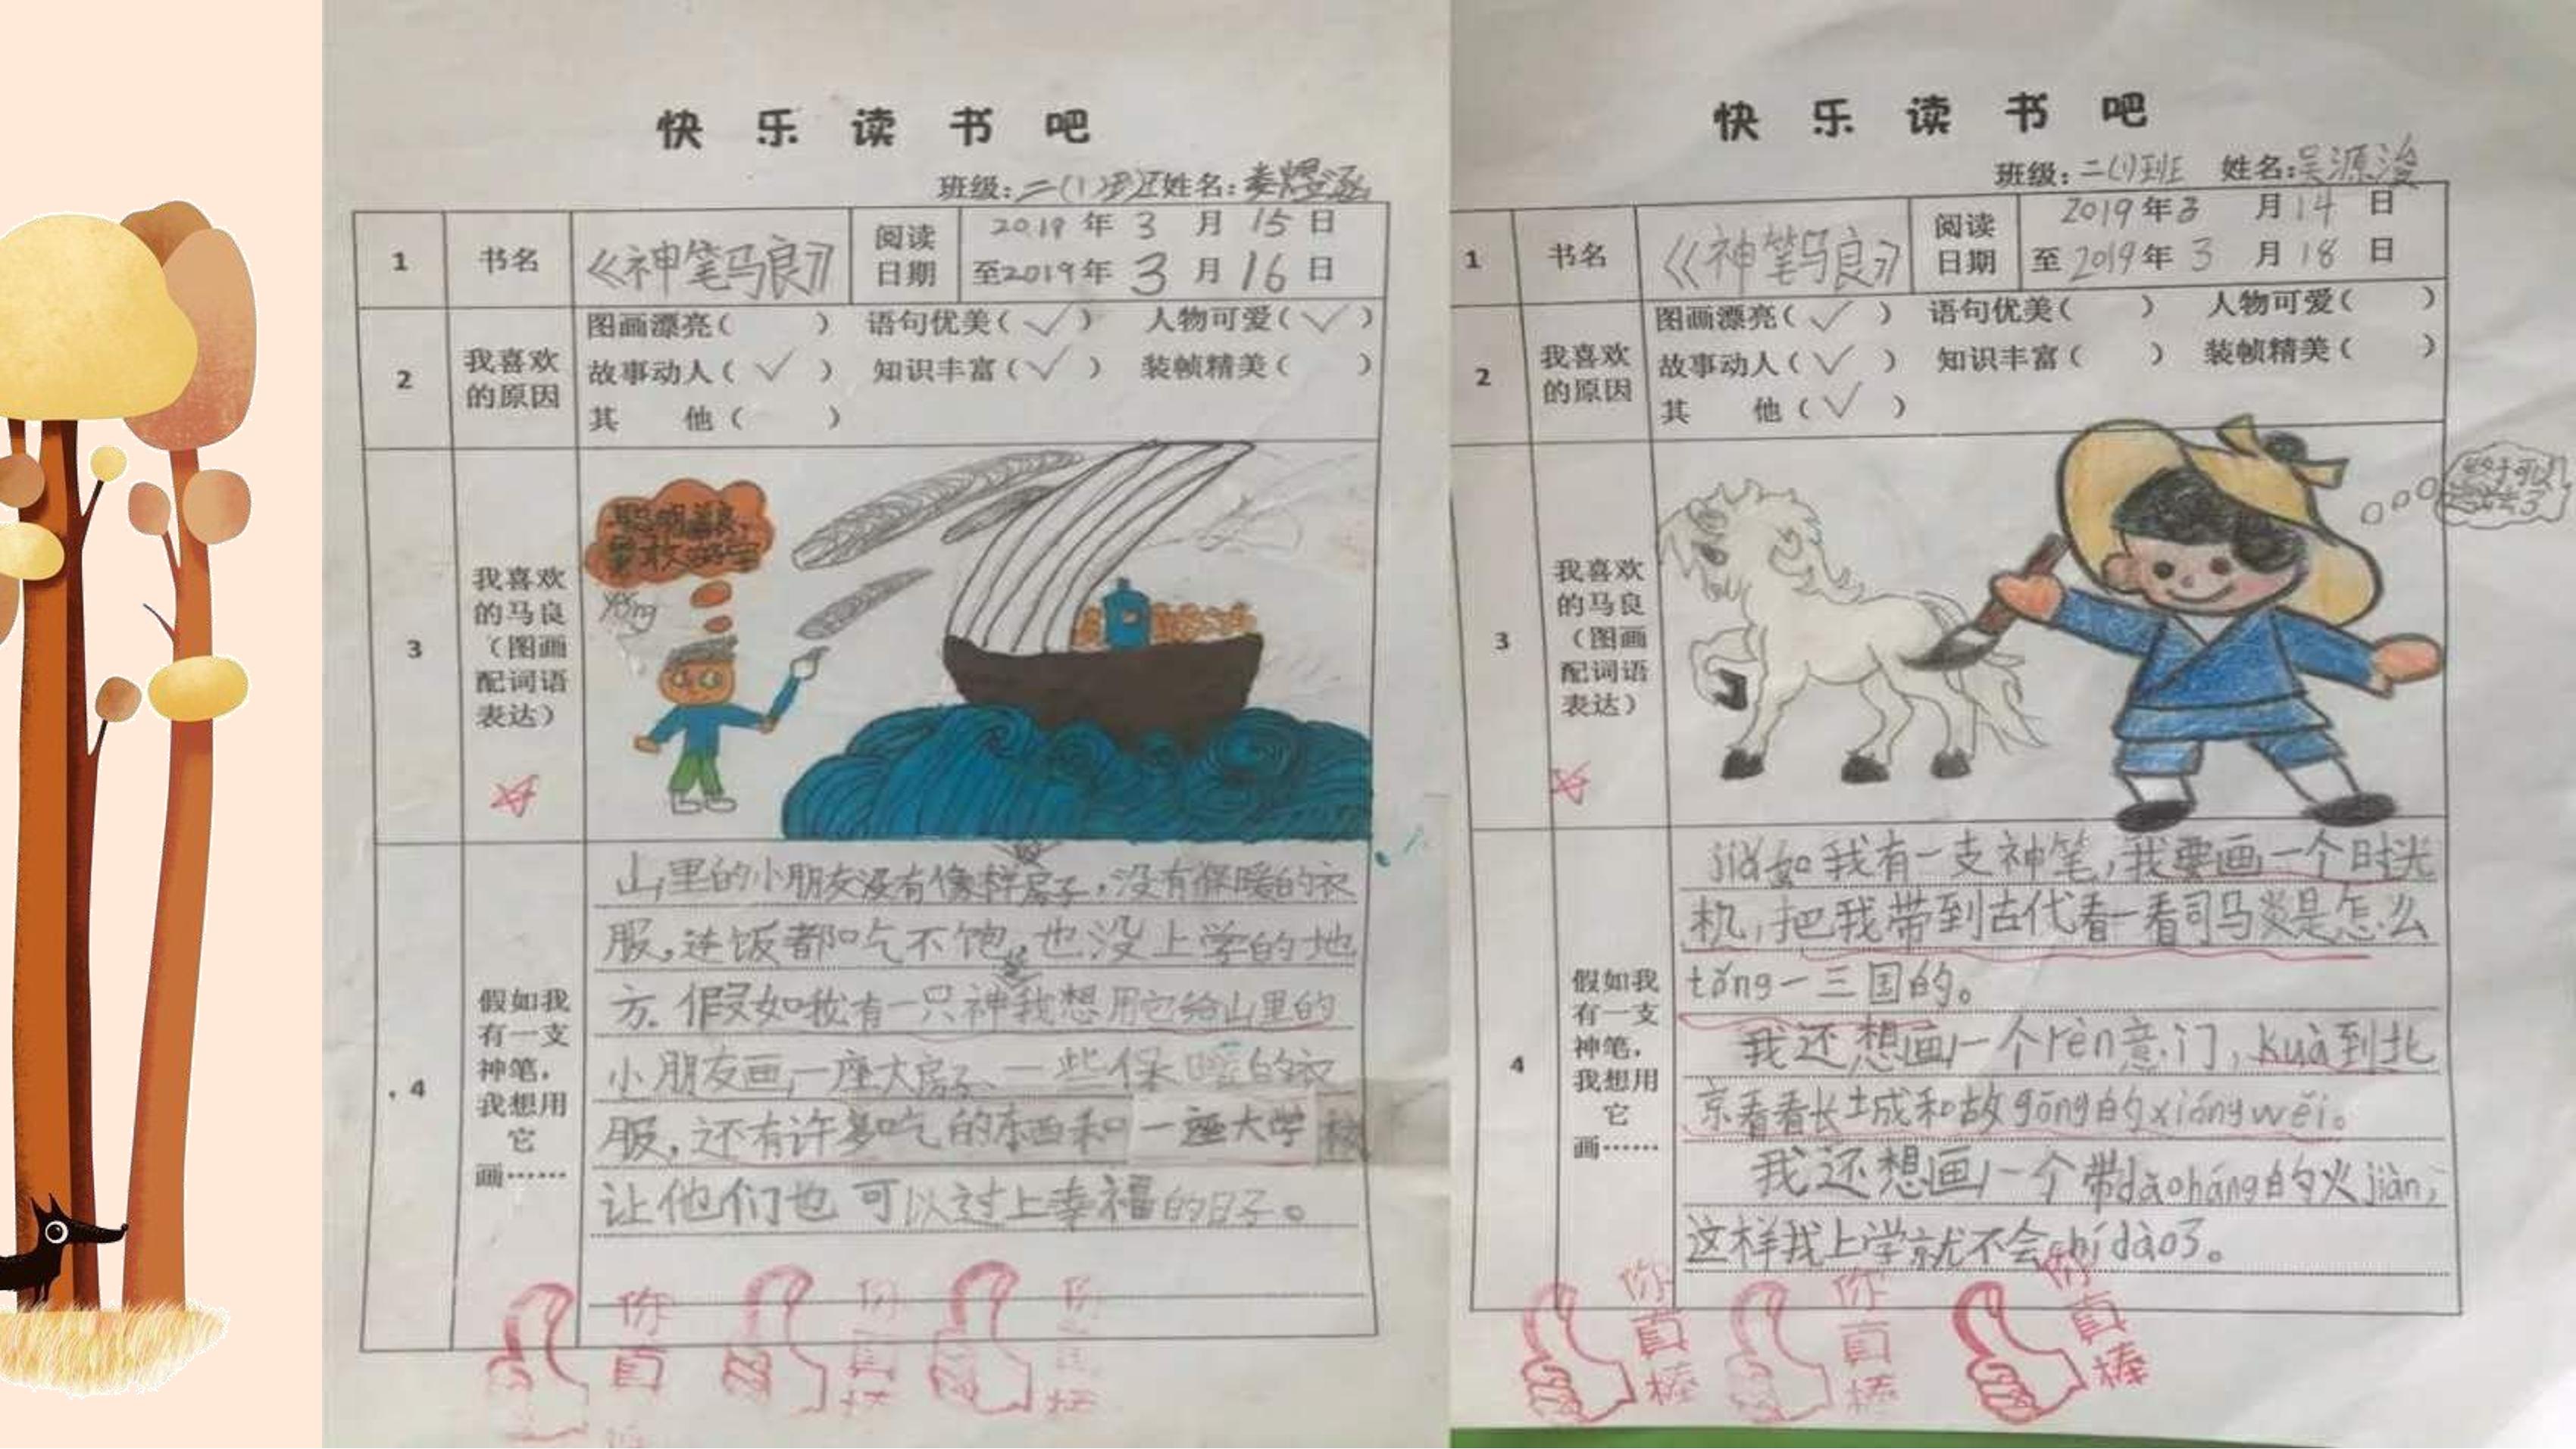 快 乐 读 书 吧
班级:二(1)班 姓名:
1 书名 《神笔马良》 阅读日期 2019年3月15日
至2019年3月16日
2 我喜欢的原因
图画漂亮( ) 语句优美(√) 人物可爱(√)
故事动人(√) 知识丰富(√) 装帧精美( )
其 他( )
3 我喜欢
的马良
（图画
配词语
表达）
4 假如我
有一支
神笔，
我想用
它
画……
山里的小朋友没有像样房子，没有保暖的衣
服，连饭都吃不饱，也没上学的地
方．假如我有一只神我想用它给山里的
小朋友画一座大房子、一些保暖的衣
服，还有许多吃的东西和一座大学校
让他们也可以过上幸福的日子。
你真棒
你真棒
你真棒
快 乐 读 书 吧
班级:二(1)班 姓名:吴源浚
1 书名 《神笔马良》 阅读日期 2019年3月14日
至2019年3月18日
2 我喜欢的原因
图画漂亮(√) 语句优美( ) 人物可爱( )
故事动人(√) 知识丰富( ) 装帧精美( )
其 他(√)
3 我喜欢
的马良
（图画
配词语
表达）
4 假如我
有一支
神笔，
我想用
它
画……
jiǎ如我有一支神笔，我要画一个时光
机，把我带到古代看一看司马炎是怎么
tǒng一三国的。
我还想画一个rèn意门，kuà到北
京看看长城和故gōng的xióngwěi。
我还想画一个带dǎoháng的火jiàn，
这样我上学就不会chídào了。
你真棒
你真棒
你真棒